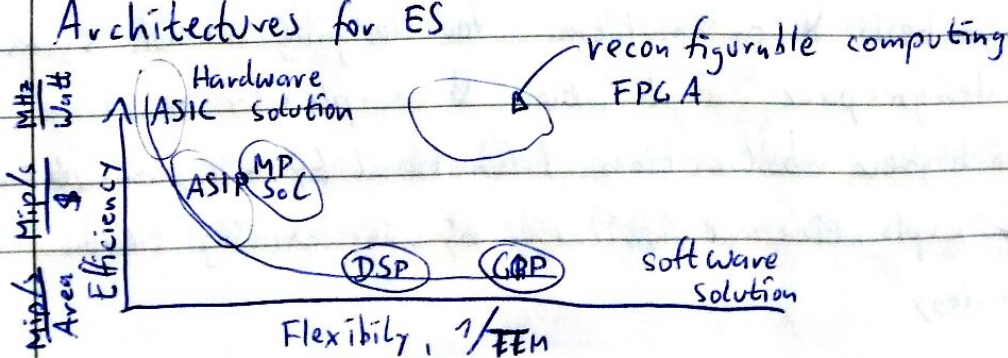 Architectures for ES
reconfigurable computing
FPGA
Hardware
solution
ASIC
ASIP
MP
SoC
DSP
GPP
software
solution
Efficiency
MHz
Watt
Mip/s
$
Mip/s
Area
Flexibily, 1/